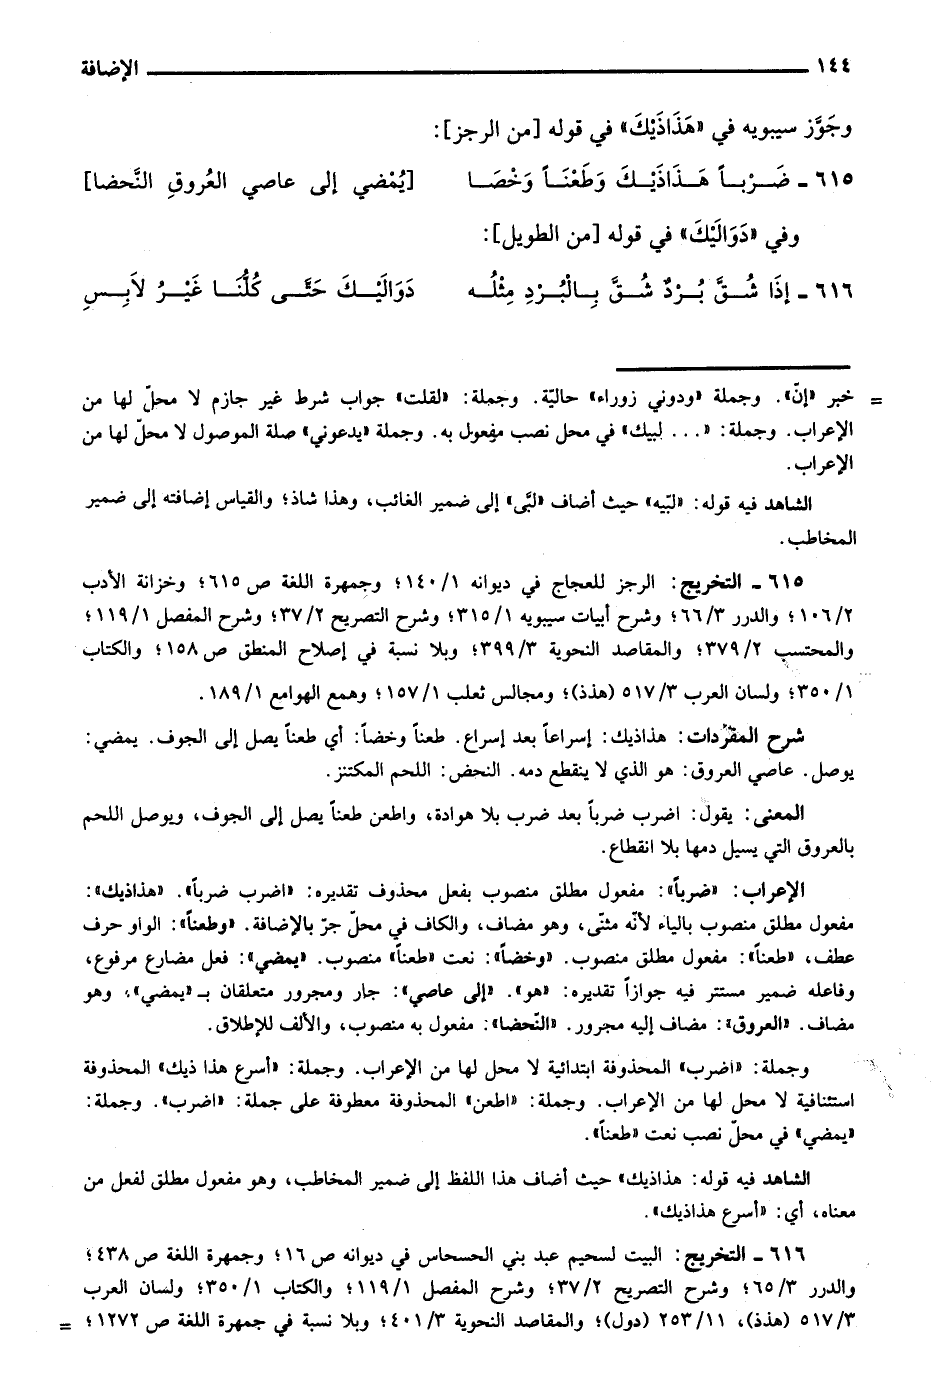 ١٤٤ ــــــــــــــــ الإضافة
وجَوَّز سيبويه في «هَذَاذَيْكَ» في قوله [من الرجز]:
٦١٥ ـ ضَـرْبـاً هَـذَاذَيْـكَ وَطَعْنَـاً وَخْضَـا [يُمْضي إلى عاصي العُروقِ النَّحضا]
وفي «دَوَالَيْكَ» في قوله [من الطويل]:
٦١٦ ـ إذَا شُـقَّ بُـرْدٌ شُـقَّ بِـالْبُـرْدِ مِثْلُـه دَوَالَيْـكَ حَتَّـى كُلُّنَـا غَيْـرُ لاَبِـسِ
= خبر «إنّ». وجملة «ودوني زوراء» حاليّة. وجملة: «لقلت» جواب شرط غير جازم لا محلّ لها من
الإعراب. وجملة: «... لبيك» في محل نصب مفعول به. وجملة «يدعوني» صلة الموصول لا محلّ لها من
الإعراب.
الشاهد فيه قوله: «لبّيه» حيث أضاف «لبَّى» إلى ضمير الغائب، وهذا شاذ؛ والقياس إضافته إلى ضمير
المخاطب.
٦١٥ ـ التخريج: الرجز للعجاج في ديوانه ١/ ١٤٠؛ وجمهرة اللغة ص ٦١٥؛ وخزانة الأدب
٢/ ١٠٦؛ والدرر ٣/ ٦٦؛ وشرح أبيات سيبويه ١/ ٣١٥؛ وشرح التصريح ٢/ ٣٧؛ وشرح المفصل ١/ ١١٩؛
والمحتسب ٢/ ٣٧٩؛ والمقاصد النحوية ٣/ ٣٩٩؛ وبلا نسبة في إصلاح المنطق ص ١٥٨؛ والكتاب
١/ ٣٥٠؛ ولسان العرب ٣/ ٥١٧ (هذذ)؛ ومجالس ثعلب ١/ ١٥٧؛ وهمع الهوامع ١/ ١٨٩.
شرح المفردات: هذاذيك: إسراعاً بعد إسراع. طعناً وخضاً: أي طعناً يصل إلى الجوف. يمضي:
يوصل. عاصي العروق: هو الذي لا ينقطع دمه. النحض: اللحم المكتنز.
المعنى: يقول: اضرب ضرباً بعد ضرب بلا هوادة، واطعن طعناً يصل إلى الجوف، ويوصل اللحم
بالعروق التي يسيل دمها بلا انقطاع.
الإعراب: «ضرباً»: مفعول مطلق منصوب بفعل محذوف تقديره: «اضرب ضرباً». «هذاذيك»:
مفعول مطلق منصوب بالياء لأنّه مثنّى، وهو مضاف، والكاف في محلّ جرّ بالإضافة. «وطعناً»: الواو حرف
عطف، «طعناً»: مفعول مطلق منصوب. «وخضاً»: نعت «طعناً» منصوب. «يمضي»: فعل مضارع مرفوع،
وفاعله ضمير مستتر فيه جوازاً تقديره: «هو». «إلى عاصي»: جار ومجرور متعلقان بـ«يمضي»، وهو
مضاف. «العروق»: مضاف إليه مجرور. «النّحضا»: مفعول به منصوب، والألف للإطلاق.
وجملة: «اضرب» المحذوفة ابتدائية لا محل لها من الإعراب. وجملة: «أسرع هذا ذيك» المحذوفة
استئنافية لا محل لها من الإعراب. وجملة: «اطعن» المحذوفة معطوفة على جملة: «اضرب». وجملة:
«يمضي» في محلّ نصب نعت «طعناً».
الشاهد فيه قوله: هذاذيك» حيث أضاف هذا اللفظ إلى ضمير المخاطب، وهو مفعول مطلق لفعل من
معناه، أي: «أسرع هذاذيك».
٦١٦ ـ التخريج: البيت لسحيم عبد بني الحسحاس في ديوانه ص ١٦؛ وجمهرة اللغة ص ٤٣٨؛
والدرر ٣/ ٦٥؛ وشرح التصريح ٢/ ٣٧؛ وشرح المفصل ١/ ١١٩؛ والكتاب ١/ ٣٥٠؛ ولسان العرب
٣/ ٥١٧ (هذذ)، ١١/ ٢٥٣ (دول)؛ والمقاصد النحوية ٣/ ٤٠١؛ وبلا نسبة في جمهرة اللغة ص ١٢٧٢؛ =